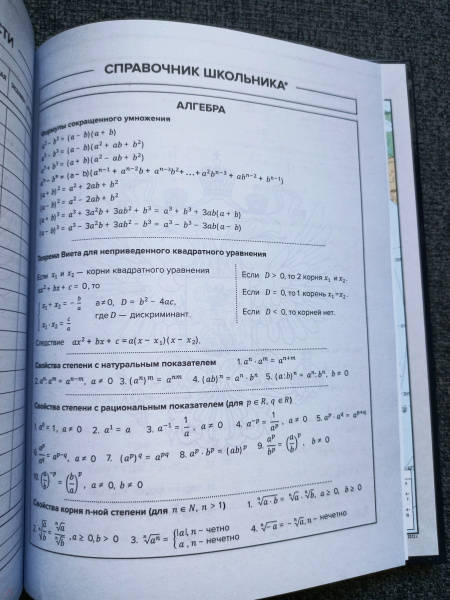 СТИ
СПРАВОЧНИК ШКОЛЬНИКА*
АЛГЕБРА
Формулы сокращенного умножения
a² − b² = (a − b)(a + b)
a³ − b³ = (a − b)(a² + ab + b²)
a³ + b³ = (a + b)(a² − ab + b²)
aⁿ − bⁿ = (a − b)(aⁿ⁻¹ + aⁿ⁻²b + aⁿ⁻³b² + ... + a²bⁿ⁻³ + abⁿ⁻² + bⁿ⁻¹)
(a + b)² = a² + 2ab + b²
(a − b)² = a² − 2ab + b²
(a + b)³ = a³ + 3a²b + 3ab² + b³ = a³ + b³ + 3ab(a + b)
(a − b)³ = a³ − 3a²b + 3ab² − b³ = a³ − b³ − 3ab(a − b)
Теорема Виета для неприведенного квадратного уравнения
Если x₁ и x₂ — корни квадратного уравнения
ax² + bx + c = 0, то
x₁ + x₂ = − b/a a ≠ 0, D = b² − 4ac,
x₁ · x₂ = c/a где D — дискриминант.
Следствие ax² + bx + c = a(x − x₁)(x − x₂).
Если D > 0, то 2 корня x₁ и x₂.
Если D = 0, то 1 корень x₁=x₂.
Если D < 0, то корней нет.
Свойства степени с натуральным показателем 1. aⁿ · aᵐ = aⁿ⁺ᵐ
2. aⁿ: aᵐ = aⁿ⁻ᵐ, a ≠ 0 3. (aⁿ)ᵐ = aⁿᵐ 4. (ab)ⁿ = aⁿ · bⁿ 5. (a: b)ⁿ = aⁿ: bⁿ, b ≠ 0
Свойства степени с рациональным показателем (для p ∈ R, q ∈ R)
1. a⁰ = 1, a ≠ 0 2. a¹ = a 3. a⁻¹ = 1/a, a ≠ 0 4. a⁻ᵖ = 1/aᵖ, a ≠ 0 5. aᵖ · a^q = a^(p+q)
6. aᵖ/a^q = a^(p−q), a ≠ 0 7. (aᵖ)^q = a^(pq) 8. aᵖ · bᵖ = (ab)ᵖ 9. aᵖ/bᵖ = (a/b)ᵖ, b ≠ 0
10. (a/b)⁻ᵖ = (b/a)ᵖ, a ≠ 0, b ≠ 0
Свойства корня n-ной степени (для n ∈ N, n > 1) 1. ⁿ√a · b = ⁿ√a · ⁿ√b, a ≥ 0, b ≥ 0
2. ⁿ√a/b = ⁿ√a/ⁿ√b, a ≥ 0, b > 0 3. ⁿ√aⁿ = {|a|, n – четно
a, n – нечетно 4. ⁿ√−a = − ⁿ√a, n – нечетно